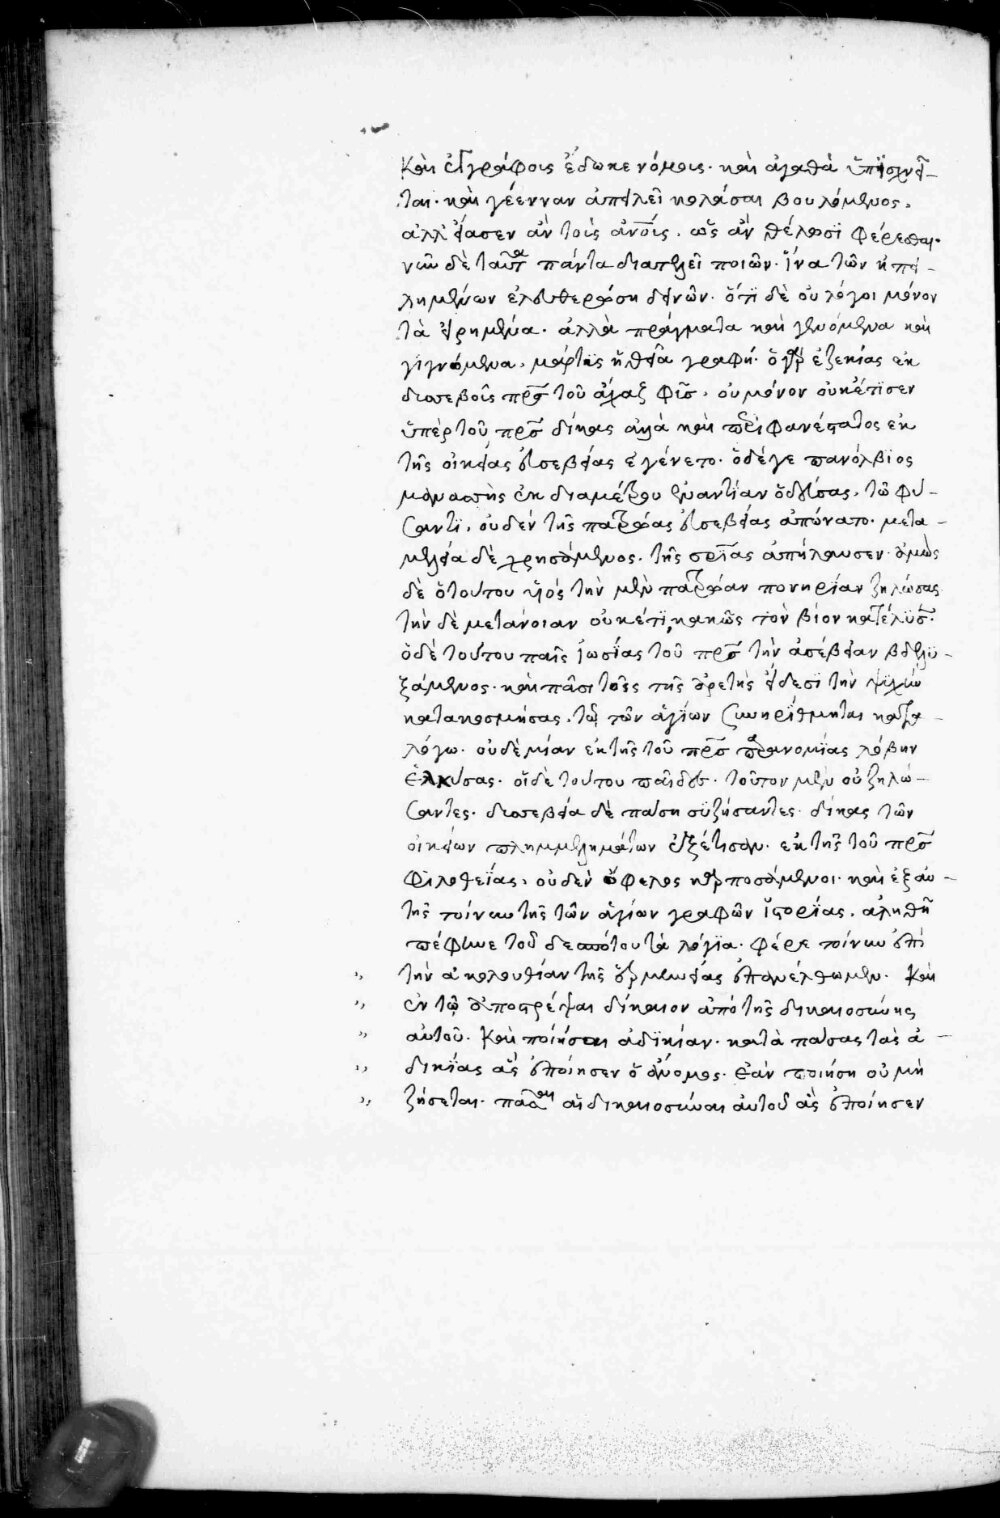 καὶ ἐγγράφοις ἔδωκε νόμοις· καὶ ἀγαθὰ ὑπισχνεῖ-
ται· καὶ γέενναν ἀπειλεῖ κολάσαι βουλόμενος.
ἀλλ' εἴασεν ἂν τοὺς ἀνους, ὡς ἂν θέλωσϊ φέρεσθαι·
νῦν δὲ ταῦτα πάντα διατελεῖ ποιῶν· ἵνα τῶν ἠπει-
λημένων ἐλευθερώση δεινῶν· ὅτι δὲ οὐ λόγοι μόνον
τὰ εἰρημένα· ἀλλὰ πράγματα καὶ γενόμενα καὶ
γιγνόμενα, μάρτυς ἡ θεία γραφή· ὁ γὰρ ἐζεκίας ἐκ
δυσσεβοῦς πρς τοῦ ἄχαζ φὺς, οὐ μόνον οὐκ ἔτισεν
ὑπὲρ τοῦ πρς δίκας ἀλλὰ καὶ περιφανέστατος ἐκ
τῆς οἰκείας εὐσεβείας ἐγένετο· ὁ δέ γε πανόλβιος
μανασσῆς ἐκ διαμέτρου ἐναντίαν ὁδεύσας, τῶ φύ-
σαντι, οὐδὲν τῆς πατρώας εὐσεβείας ἀπώνατο· μετα-
μελεία δὲ χρησάμενος, τῆς σρίας ἀπήλαυσεν· ὁμῶς
δὲ ὁ τούτου υἱὸς τὴν μὲν πατρώαν πονηρίαν ζηλώσας
τὴν δὲ μετάνοιαν οὐκέτι, κακῶς τὸν βίον κατέλυσε·
ὁ δὲ τούτου παῖς ἰωσίας τοῦ πρς τὴν ἀσέβειαν βδελυ-
ξάμενος· καὶ πᾶσι τοῖς τῆς ἀρετῆς εἴδεσϊ τὴν ψυχὴν
κατακοσμήσας, τῶ τῶν ἁγίων συνηρίθμηται καταλ-
λόγω· οὐδεμίαν ἐκ τῆς τοῦ πρς παρανομίας λώβην
ἑλκύσας· οἱ δὲ τούτου παῖδες· τοῦτον μὲν οὐ ζηλώ-
σαντες· δυσσεβεία δὲ πάση συζήσαντες· δίκας τῶν
οἰκείων πλημμελημάτων ἐξέτισαν· ἐκ τῆς τοῦ πρς
φιλοθεΐας, οὐδὲν ὄφελος καρποσάμενοι· καὶ ἐξ αὐ-
τῆς τοίνυν τῆς τῶν ἁγίων γραφῶν ἱστορίας, ἀληθῆ
πέφηνε τοῦ δεσπότου τὰ λόγϊα· φέρε τοίνυν ἐπὶ
,, τὴν ἀκολουθίαν τῆς ἑρμηνείας ἐπανέλθωμεν· καὶ
,, ἐν τῶ ἀποστρέψαι δίκαιον ἀπὸ τῆς δικαιοσύνης
,, αὐτοῦ· καὶ ποιήσαι ἀδικίαν· κατὰ πάσας τὰς ἀ-
,, δικίας ἃς ἐποίησεν ὁ ἄνομος· ἐὰν ποιήση οὐ μὴ
,, ζήσεται· πᾶσαι αἱ δικαιοσύναι αὐτοῦ ἃς ἐποίησεν